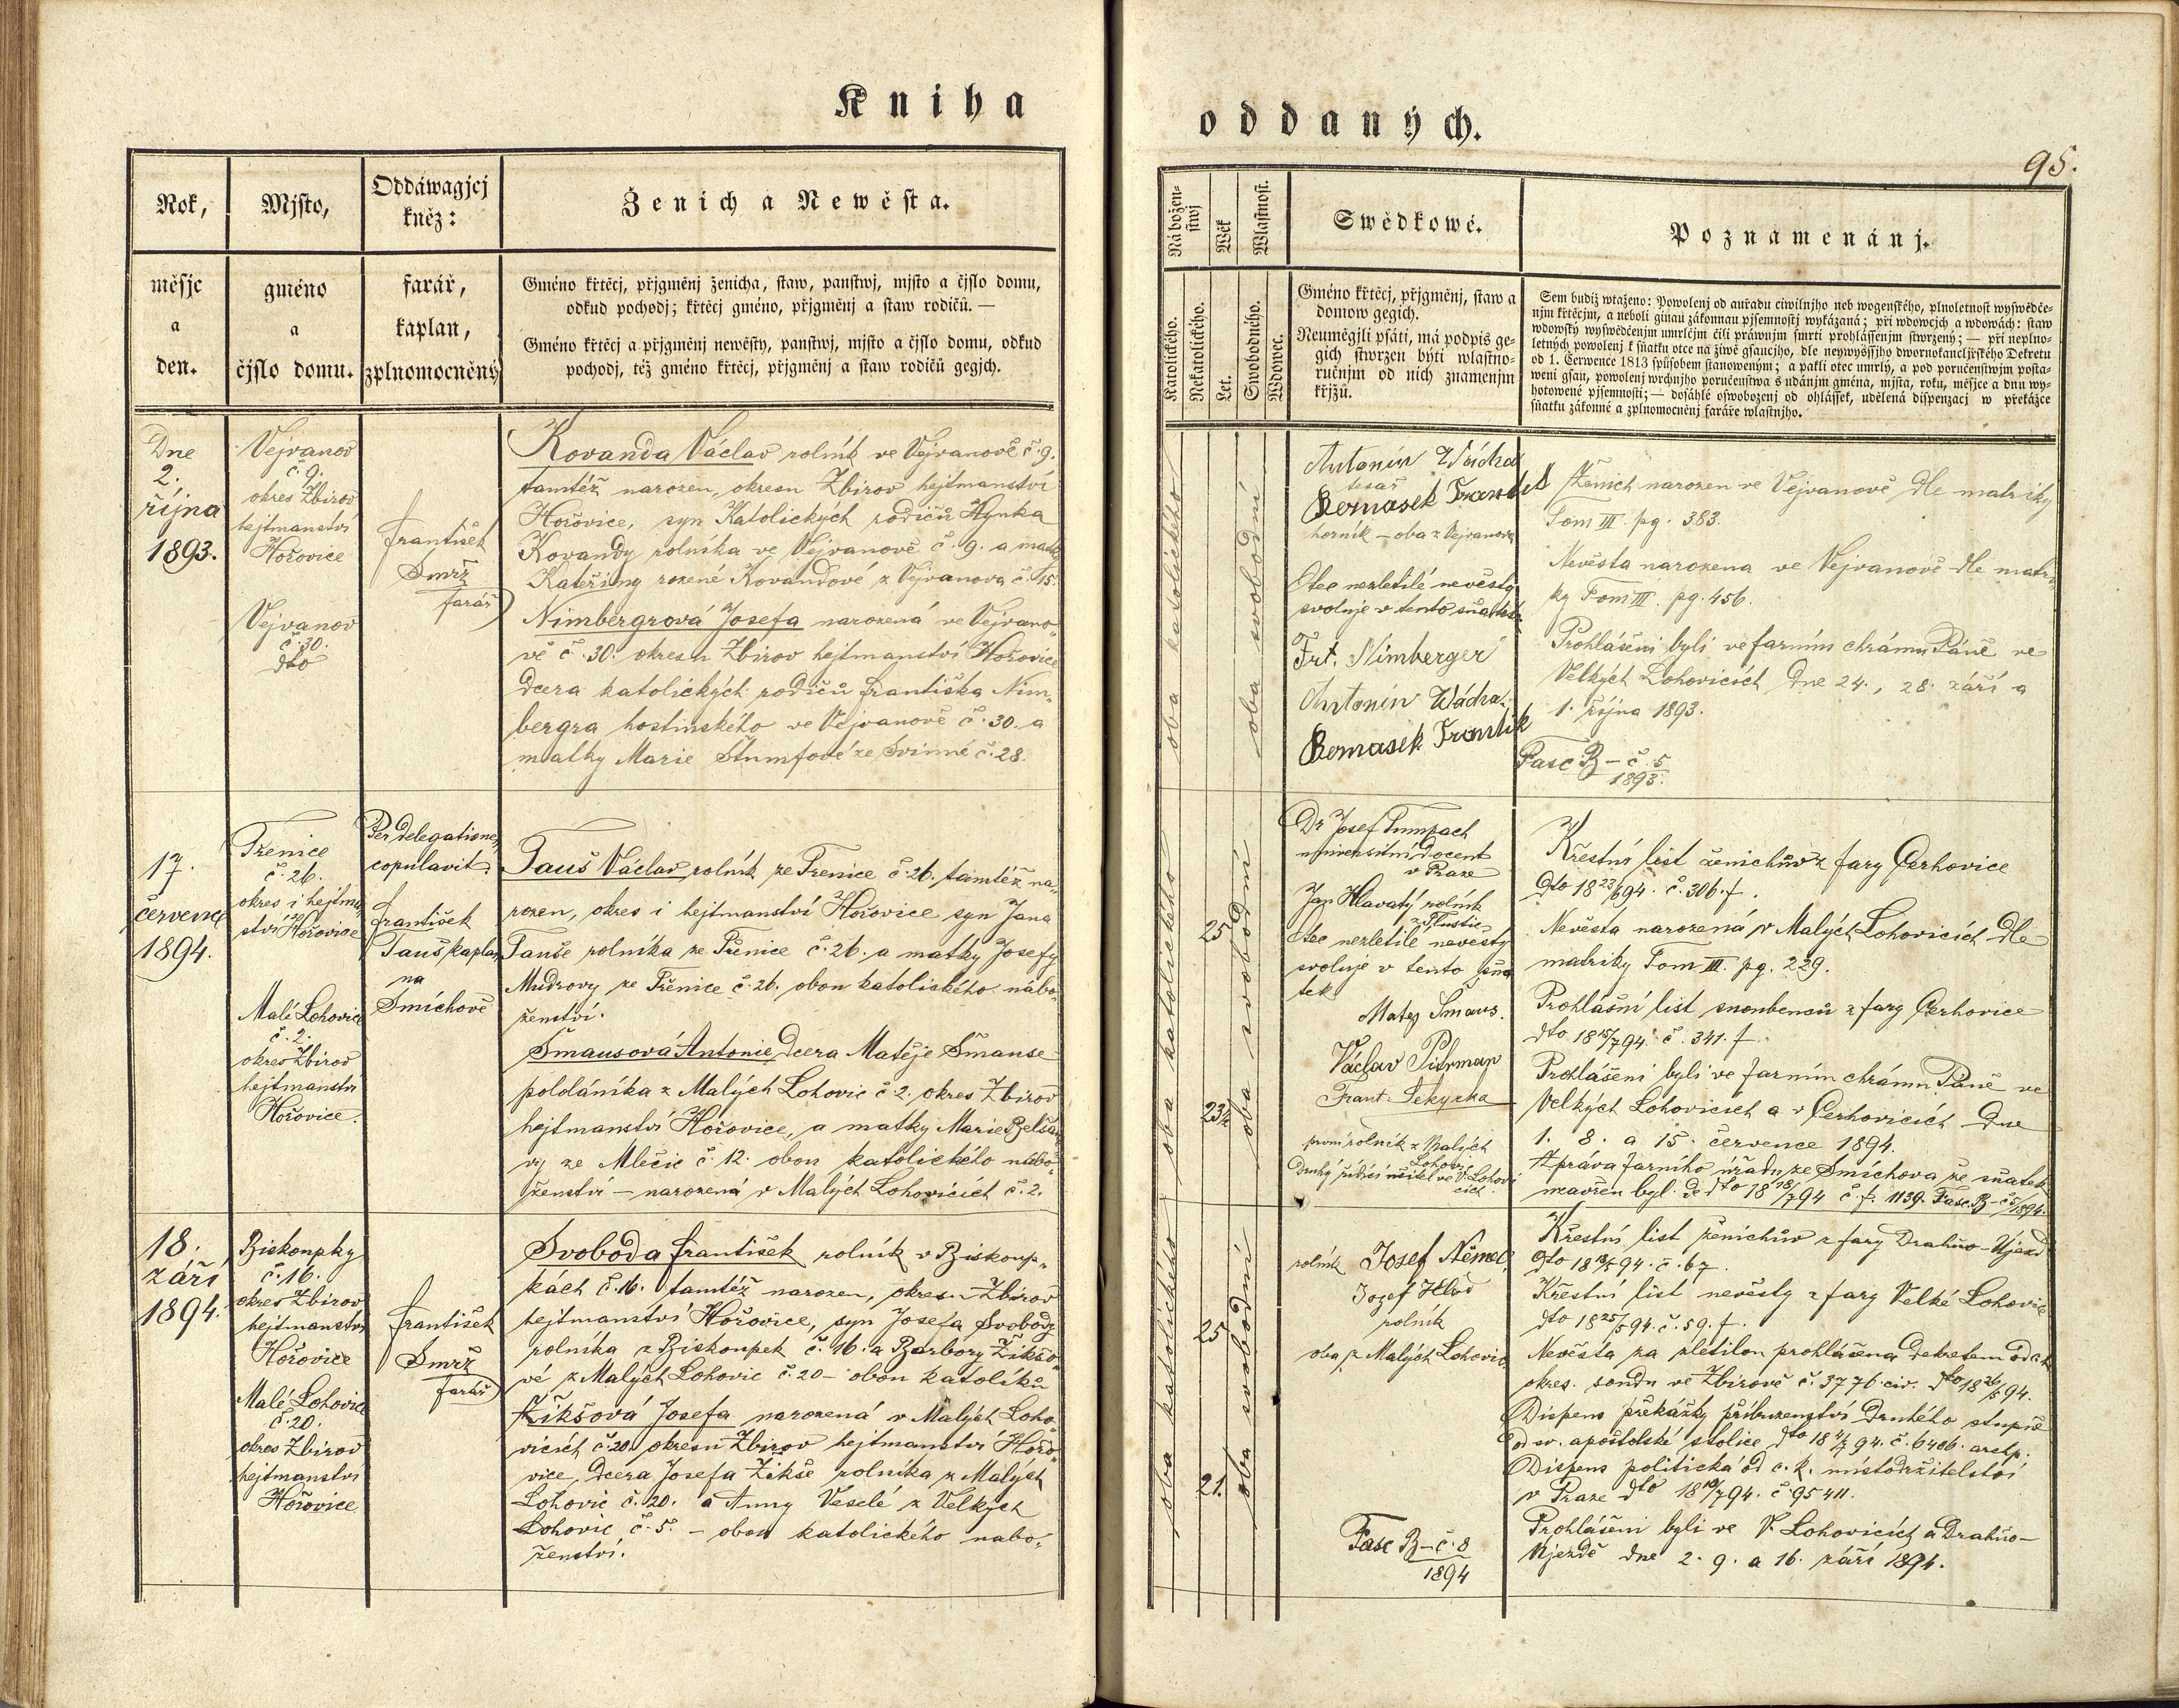 Kniha
oddaných.
95.
Rok,
měsjc
a
den.
Mjsto,
gméno
a
čjslo domu.
Oddáwagjcj
kněz:
farář,
kaplan,
zplnomocněný
Ženich a Newěsta.
Gméno křtěcj, přjgměnj ženicha, staw, panstwj, mjsto a čjslo domu,
odkud pochodj; křtěcj gméno, přjgměnj a staw rodičů. —
Gméno křtěcj a přjgměnj newěsty, panstwj, mjsto a čjslo domu, odkud
pochodj, též gméno křtěcj, přjgměnj a staw rodičů gegjch.
Náboženstwj
Katolického.
Nekatolického.
Wěk
Let.
Wlastnost.
Swobodného.
Wdowec.
Swědkowé.
Gméno křtěcj, přjgměnj, staw a
domow gegich.
Neuměgjli psáti, má podpis ge-
gich stwrzen býti wlastno-
ručnjm od nich znamenjm
křjžů.
Poznamenánj.
Sem budiž wtaženo: Powolenj od auřadu ciwilnjho neb wogenského, plnoletnost wyswědče-
njm křtěcjm, a neboli ginau zákonnau pjsemnostj wykázaná; při wdowcjch a wdowách: staw
wdowský wyswědčenjm umrlčjm čili práwnjm smrti prohlássenjm stwrzený; — při neplno-
letných powolenj k sňatku otce na žiwě gsaucjho, dle neywyšsjho dwornokancljřského Dekretu
od 1. Června 1813 spůsobem stanoweným; a pakli otec umrlý, a pod poručenstwjm posta-
weni gsau, powolenj wrchnjho poručenstwa s udánjm gména, mjsta, roku, měsjce a dnu wy-
hotowené pjsemnosti; — dosáhlé oswobozenj od ohlássek, udělená dispenzacj w překážce
sňatku zákonné a zplnomocněnj faráře wlastnjho.
Dne
2.
října
1893.
Vejvanov
č. 9.
okres Zbirov
hejtmanství
Hořovice
Vejvanov
č. 30.
dto
František
Smrž
farář
Kovanda Václav rolník ve Vejvanově č. 9.
tamtéž narozen, okresu Zbirov hejtmanství
Hořovice, syn Katolických rodičů Hynka
Kovandy rolníka ve Vejvanově č. 9. a matky
Kateřiny rozené Kovandové z Vejvanova č. 15.
Nimbergrová Josefa narozená ve Vejvano-
vě č. 30. okresu Zbirov hejtmanství Hořovice
dcera katolických rodičů Františka Nim-
bergra hostinského ve Vejvanově č. 30. a
matky Marie Štumfové ze Svinné č. 28.
oba katolického
oba svobodní
Antonín Wácha
tesař
Bernasek Frantik
horník – oba z Vejvanova
Otec nezletilé nevěsty
svoluje v tento sňatek
Frt. Nimberger
Antonín Wácha
Bernasek Frantik
Ženich narozen ve Vejvanově dle matriky
Tom III. pg. 383.
Nevěsta narozena ve Vejvanově dle matri-
ky Tom III. pg. 456.
Prohlášeni byli ve farním chrámu Páně ve
Velkých Lohovicích dne 24., 28. září a
1. října 1893.
Fasc B – č. 5
1893.
17.
července
1894.
Třenice
č. 26.
okres i hejtman-
ství Hořovice
Malé Lohovice
č. 2.
okres Zbirov
hejtmanství
Hořovice.
Per delegationem
copulavit:
František
Tauš kaplan
na
Smíchově
Tauš Václav rolník ze Třenice č. 26. tamtéž na-
rozen, okres i hejtmanství Hořovice syn Jana
Tauše rolníka ze Třenice č. 26. a matky Josefy
Mudrovy ze Třenice č. 26. obou katolického nábo-
ženství.
Šmausová Antonie dcera Matěje Šmause
pololáníka z Malých Lohovic č. 2. okres Zbirov
hejtmanství Hořovice, a matky Marie
vy ze Mlečic č. 12. obou katolického nábo-
ženství – narozená v Malých Lohovicích č. 2.
oba katolického
25
23¾
oba svobodní
Dr Josef Tumpach
universitní docent
v Praze
Jan Hlavatý rolník
Otec nezletilé nevěsty
svoluje v tento sňa-
tek
Matej Šmaus.
Václav
Frant. Sekyrka
první rolník z Malých
Lohovic
druhý řídící učitel ve V. Lohovi-
cích.
Křestní list ženichův z fary Cerhovice
dto 18 23/6 94. č. 306. f.
Nevěsta narozená v Malých Lohovicích dle
matriky Tom III. pg. 229.
Prohlášní list snoubenců z fary Cerhovice
dto 18 15/7 94. č. 341. f.
Prohlášeni byli ve farním chrámu Páně ve
Velkých Lohovicích a v Cerhovicích dne
1. 8. a 15. července 1894.
Zpráva farního úřadu ze Smíchova že sňatek
uzavřen byl de dto 18 18/7 94 č. f. 1139. Fasc. B – č 5/1894.
18.
září
1894.
Biskoupky
č. 16.
okres Zbirov
hejtmanství
Hořovice
Malé Lohovice
č. 20.
okres Zbirov
hejtmanství
Hořovice
František
Smrž
farář
Svoboda František rolník v Biskoup-
kách č. 16. tamtéž narozen, okresu Zbirov
hejtmanství Hořovice, syn Josefa Svobody
rolníka z Biskoupek č. 16. a Barbory Žikšo-
vé z Malých Lohovic č. 20 – obou katolíků
Žikšová Josefa narozená v Malých Loho-
vicích č. 20. okresu Zbirov hejtmanství Hořo-
vice, dcera Josefa Žikše rolníka z Malých
Lohovic č. 20. a Anny Veselé z Velkých
Lohovic č. 5. – obou katolického nábo-
ženství.
oba katolického
25
21.
oba svobodní
rolník Josef Němec
Jozef
rolník
oba z Malých Lohovic
Fasc B – č. 8
1894
Křestní list ženichův z fary Drahňo-Újezd
č. 67.
Křestní list nevěsty z fary Velké Lohovice
dto 18 25/5 94. č. 59. f.
Nevěsta za zletilou prohlášena dekretem od c. k.
okres. soudu ve Zbirově č. 3776. civ. dto 18 26/5 94.
Dispens překážky příbuzenství druhého stupně
od sv. apoštolské stolice dto 18 4/7 94. č. 6406. archp.
Dispens politická od c. k. místodržitelství
v Praze dto 18 19/7 94. č 95411.
Prohlášeni byli ve V. Lohovicích a Drahňo-
Újezdě dne 2. 9. a 16. září 1894.